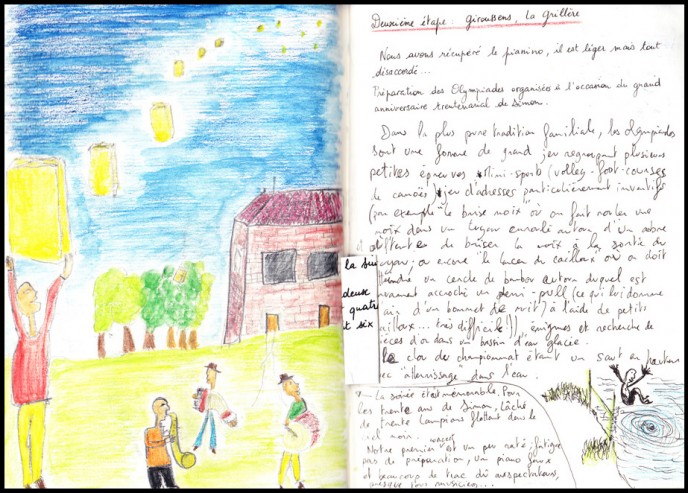 Deuxième étape : Giroussens, La Grillère
Nous avons récupéré le pianino, il est léger mais tout
disaccordé...
Préparation des Olympiades organisées à l'occasion du grand
anniversaire trentenarial de Simon.
Dans la plus pure tradition familiale, les Olympiades
sont une forme de grand jeu regroupant plusieurs
petites épreuves Mini-sports (volley-foot-courses
de canoës) jeu d'adresses particulièrement inventifs
(par exemple "le brise noix" où on fait rouler une
noix dans un tuyau enroulé autour d'un arbre
de briser la noix à la sortie du
ou encore "le lancer de cailloux où on doit
un cercle de bambou autour duquel est
accroché un demi-pull (ce qui lui donne
d'un bonnet de nuit) à l'aide de petits
... très difficile!), énigmes et recherche de
d'or dans un bassin d'eau glacée.
Le clou du championnat étant un saut en hauteur
"atterrissage" dans l'eau.
la sui
deuse
quatre
t six
La soirée était mémorable. Pour
les trente ans de Simon, lâché
de trente lampions flottant dans le
ciel noir.
Notre premier est un peu raté, fatigue
pas de préparation, un piano faux
et beaucoup de trac dû aux spectateurs,